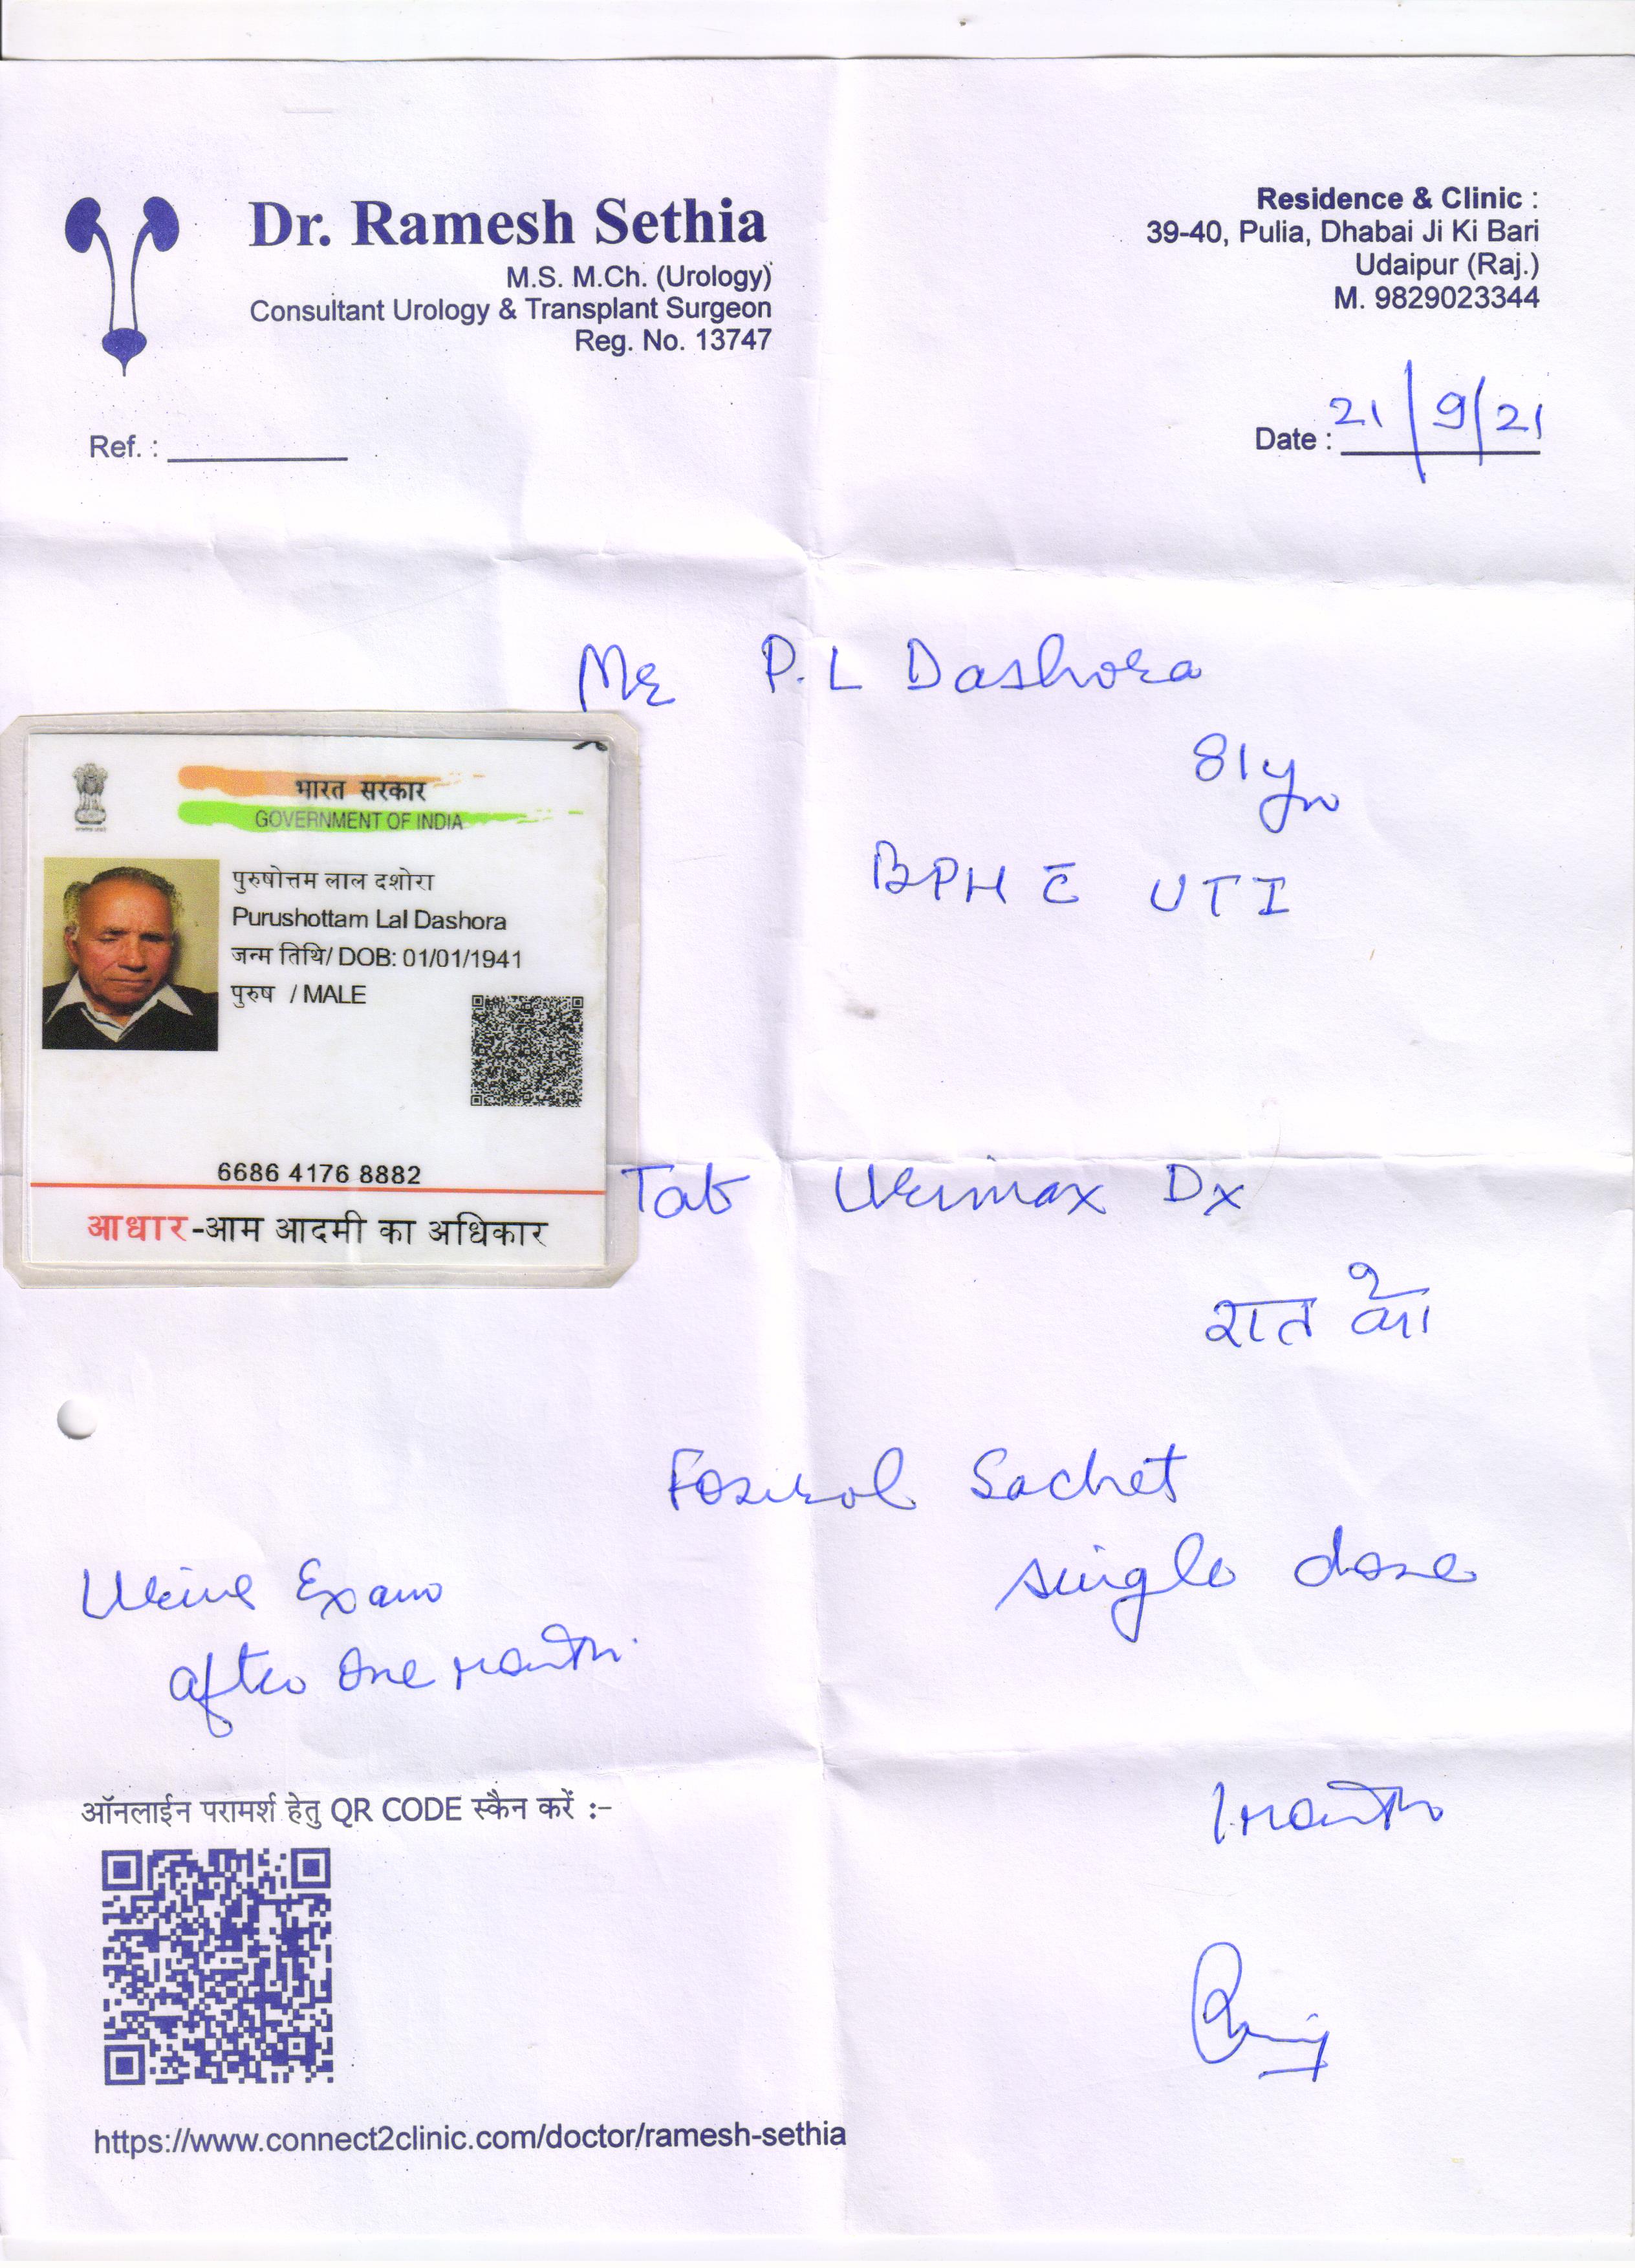 Dr. Ramesh Sethia
M.S. M.Ch. (Urology)
Consultant Urology & Transplant Surgeon
Reg. No. 13747
Residence & Clinic :
39-40, Pulia, Dhabai Ji Ki Bari
Udaipur (Raj.)
M. 9829023344
Ref. :
Date : 21/9/21
Mr P.L Dashora
81yr
BPH c̄ UTI
भारत सरकार
GOVERNMENT OF INDIA
पुरुषोत्तम लाल दशोरा
Purushottam Lal Dashora
जन्म तिथि/ DOB: 01/01/1941
पुरुष / MALE
6686 4176 8882
आधार-आम आदमी का अधिकार
Tab Urimax Dx
रात को
Fosirol Sachet
single dose
Urine Exam
after one month
1 month
ऑनलाईन परामर्श हेतु QR CODE स्कैन करें :-
https://www.connect2clinic.com/doctor/ramesh-sethia